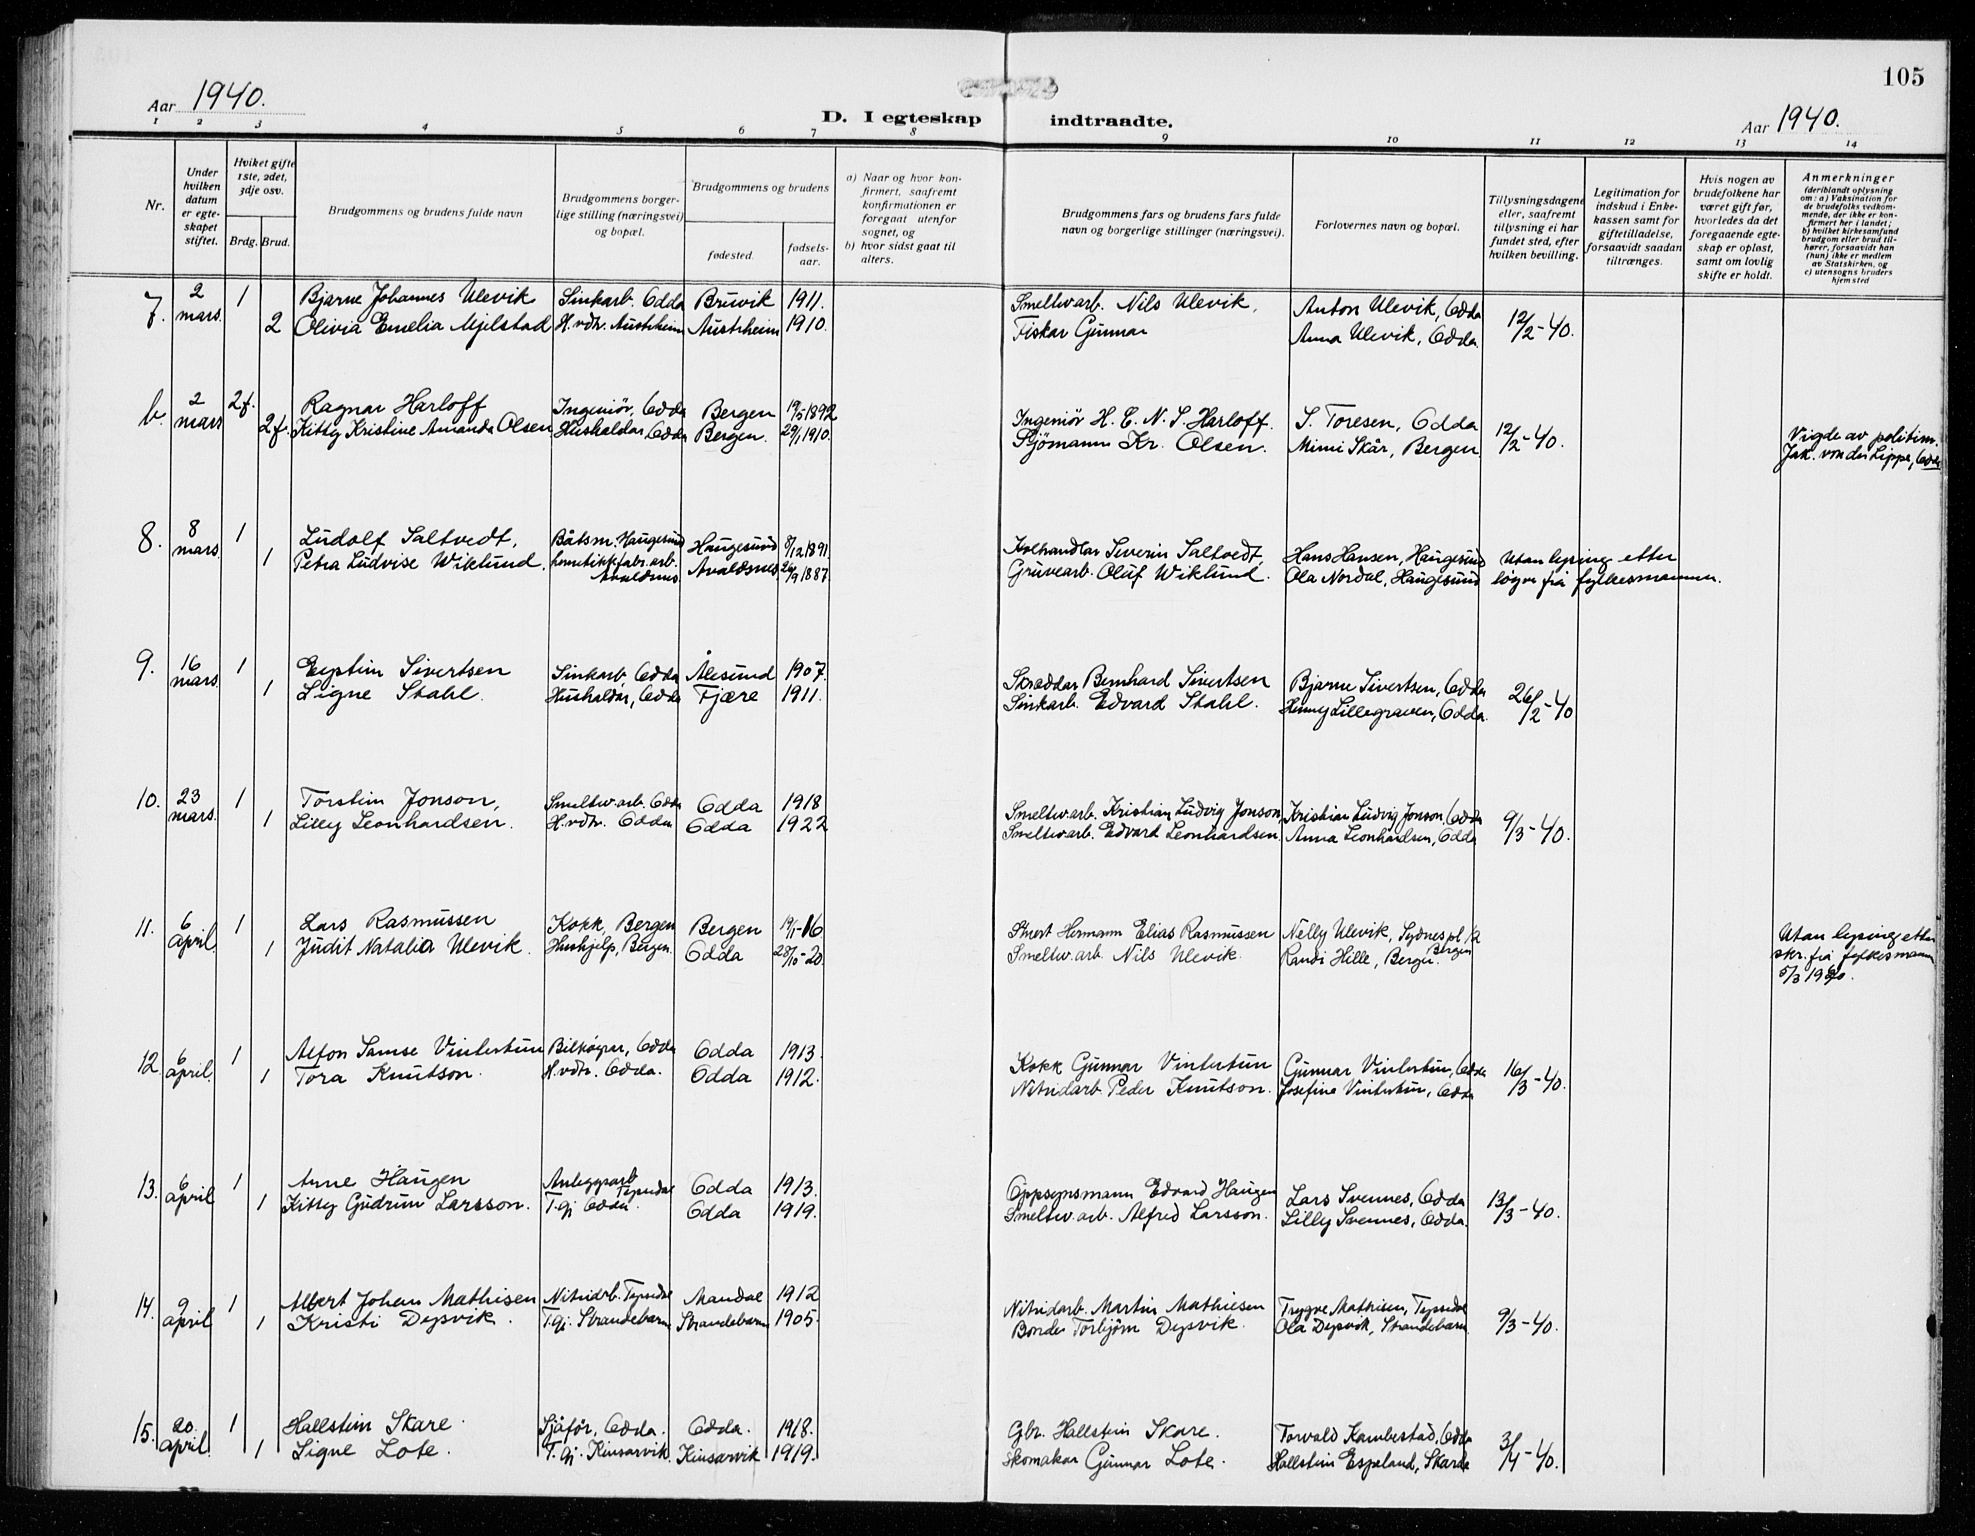 105
Aar 1940.
D. I egteskap indtraadte.
Aar 1940.
1 2 3 4 5 6 7 8 9 10 11 12 13 14
Nr.
Under hvilken datum er egteskapet stiftet.
Hviket gifte 1ste, 2det, 3dje osv.
Brdg. Brud.
Brudgommens og brudens fulde navn
Brudgommens borgerlige stilling (næringsvei) og bopæl.
Brudgommens og brudens
fødested. fødselsaar.
a) Naar og hvor konfirmert, saafremt konfirmationen er foregaat utenfor sognet, og
b) hvor sidst gaat til alters.
Brudgommens fars og brudens fars fulde navn og borgerlige stillinger (næringsvei).
Forlovernes navn og bopæl.
Tillysningsdagene eller, saafremt tillysning ei har fundet sted, efter hvilken bevilling.
Legitimation for indskud i Enkekassen samt for giftetilladelse, forsaavidt saadan tiltrænges.
Hvis nogen av brudefolkene har været gift før, hvorledes da det foregaaende egteskap er opløst, samt om lovlig skifte er holdt.
Anmerkninger (deriblandt oplysning om: a) Vaksination for de brudefolks vedkommende, der ikke er konfirmert her i landet; b) hvilket kirkesamfund brudgom eller brud tilhører, forsaavidt han (hun) ikke er medlem av Statskirken, og c) utensogns bruders hjemsted
7. 2 mars. 1 Bjarne Johannes Ulevik Sinkarb. Odda Bruvik 1911. Smeltv.arb. Nils Ulevik. Anton Ulevik, Odda 12/2-40.
2 Olivia Emelia Mjelstad H.vdtr. Austrheim Austrheim 1910. Fiskar Gunnar Anna Ulevik, Odda.
b. 2 mars 2f. Ragnar Harloff Ingeniør, Odda Bergen 19/5 1892 Ingeniør H. E. N. S. Harloff. S. Toresen, Odda 12/2-40. Vigde av politim.
2f. Kitty Kristine Amanda Olsen Hushaldar, Odda Bergen. 29/1 1910. Sjømann Kr. Olsen. Mimi Skår, Bergen Jak. von der Lippe, Odda
8. 8 mars. 1 Ludolf Saltvedt, Båtsm. Haugesund Haugesund 8/12 1891 Kolhandlar Severin Saltvedt, Hans Hansen, Haugesund Utan lysing etter
1 Petra Ludvise Wiklund. hermetikkfabr.arb. Avaldsnes Avaldsnes 26/9 1887. Gruvearb. Oluf Wiklund. Ola Nordal, Haugesund løyve frå fylkesmannen.
9. 16 mars. 1 Eystein Sivertsen Sinkarb. Odda Ålesund 1907. Skreddar Bernhard Sivertsen Bjarne Sivertsen, Odda 26/2-40
1 Signe Stahl. Hushaldar, Odda Fjære 1911. Sinkarb. Edvard Stahl. Henny Lillegraven, Odda.
10. 23 mars. 1 Torstein Jonson, Smeltv.arb. Odda Odda 1918 Smeltv.arb. Kristian Ludvig Jonson, Kristian Ludvig Jonson, Odda 9/3-40.
1 Lilly Leonhardsen. H.vdtr. Odda Odda 1922 Smeltv.arb. Edvard Leonhardsen. Anna Leonhardsen, Odda
11. 6 april. 1 Lars Rasmussen Kokk, Bergen Bergen 19/1-16 Herman Elias Rasmussen Nelly Ulevik, Sydnespl. 12 Bergen Utan lysing etter
1 Judit Natalia Ulevik. Hushjelp, Bergen. Odda 28/10-20. Smeltv.arb. Nils Ulevik. Randi Hille, Bergen. skr. frå fylkesmann
5/3 1940.
12. 6 april. 1 Alfon Samse Vintertun Bilkøyrar, Odda Odda 1913. Kokk Gunnar Vintertun Gunnar Vintertun, Odda 16/3-40.
1 Tora Knutson. H.vdtr. Odda. Odda 1912. Nitridarb. Peder Knutson. Josefine Vintertun, Odda
13. 6 april 1 Arne Haugen Anleggsarb. Tyssedal Odda 1913. Oppsynsmann Edvard Haugen Lars Svennes, Odda 13/3-40.
1 Kitty Gudrun Larsson. T.gj. Odda. Odda 1919. Smeltv.arb. Alfred Larsson. Lilly Svennes, Odda.
14. 9 april 1 Albert Johan Mathisen Nitridarb. Tyssedal Mandal 1912 Nitridarb. Martin Mathiesen Trygve Mathisen, Tyssedal 9/3-40.
1 Kristi Dysvik. T.gj. Strandebarm Strandebarm 1905. Bonde Torbjørn Dysvik. Ola Dysvik, Strandebarm
15. 20. april. 1 Hallstein Skare. Sjåfør, Odda. Odda. 1918. Gbr. Hallstein Skare. Torvald Kambestad, Odda 3/4-40.
1 Signe Lote. T.gj. Kinsarvik. Kinsarvik 1919. Skomakar Gunnar Lote. Hallstein Espeland, Skarde